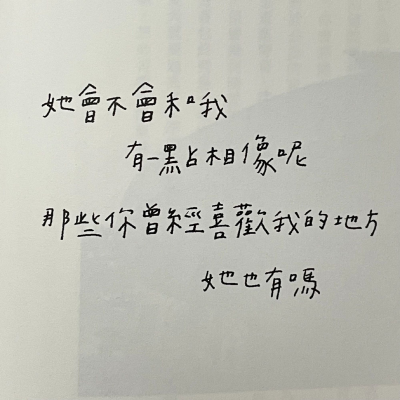 她會不會和我
有一點占相像呢
那些你曾經喜歡我的地方
她也有嗎